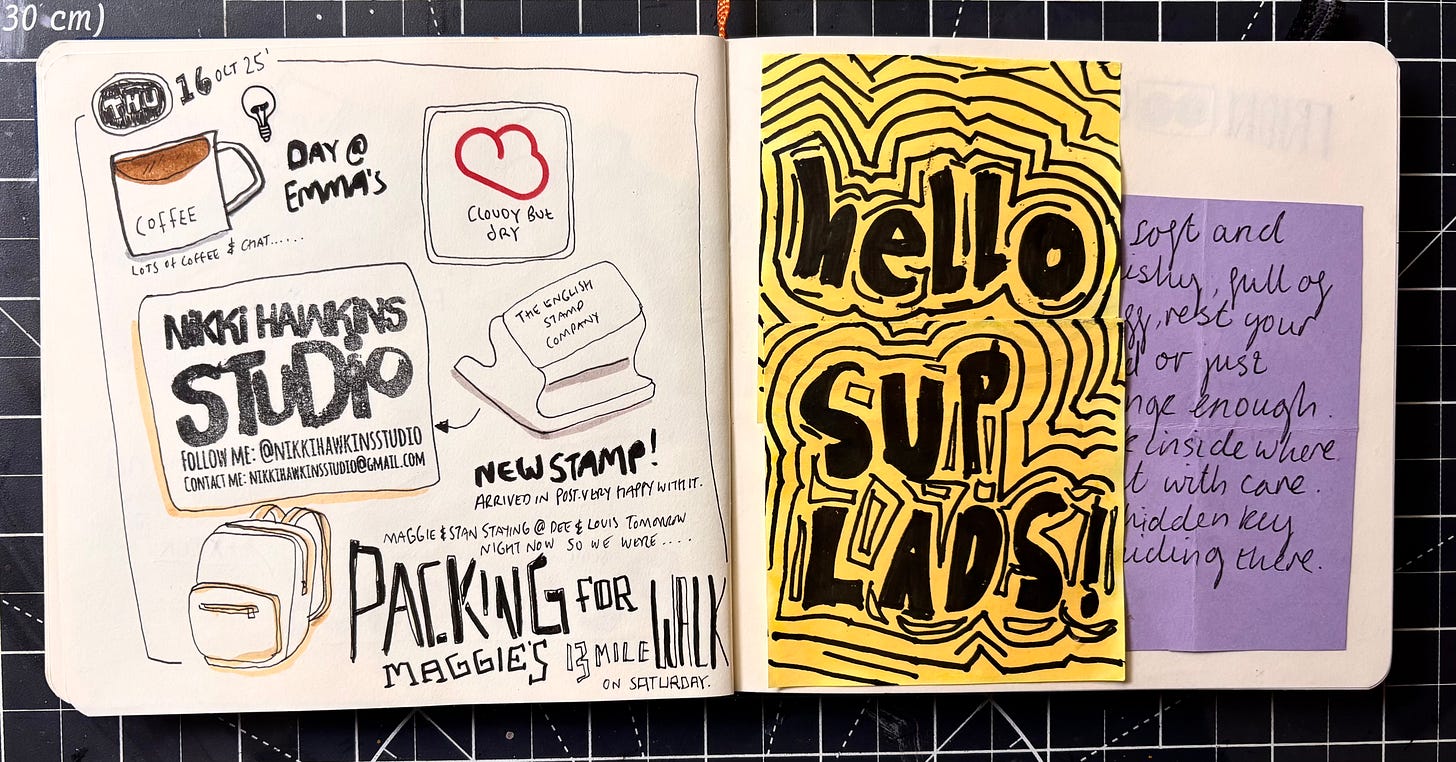 30 cm)
THU 16 OCT 25'
DAY @
EMMA'S
COFFEE
LOTS OF COFFEE & CHAT......
CLOUDY BUT
DRY
NIKKI HAWKINS
STUDIO
FOLLOW ME: @NIKKIHAWKINSSTUDIO
CONTACT ME: NIKKIHAWKINSSTUDIO@GMAIL.COM
THE ENGLISH
STAMP
COMPANY
NEW STAMP!
ARRIVED IN POST-VERY HAPPY WITH IT.
MAGGIE & STAN STAYING @ DEE & LOUIS TOMORROW
NIGHT NOW SO WE WERE....
PACKING FOR
MAGGIE'S 13 MILE WALK
ON SATURDAY.
hello
SUP
LADS!
soft and
full of
rest your
or just
enough.
inside where
with care.
hidden key
hiding there.